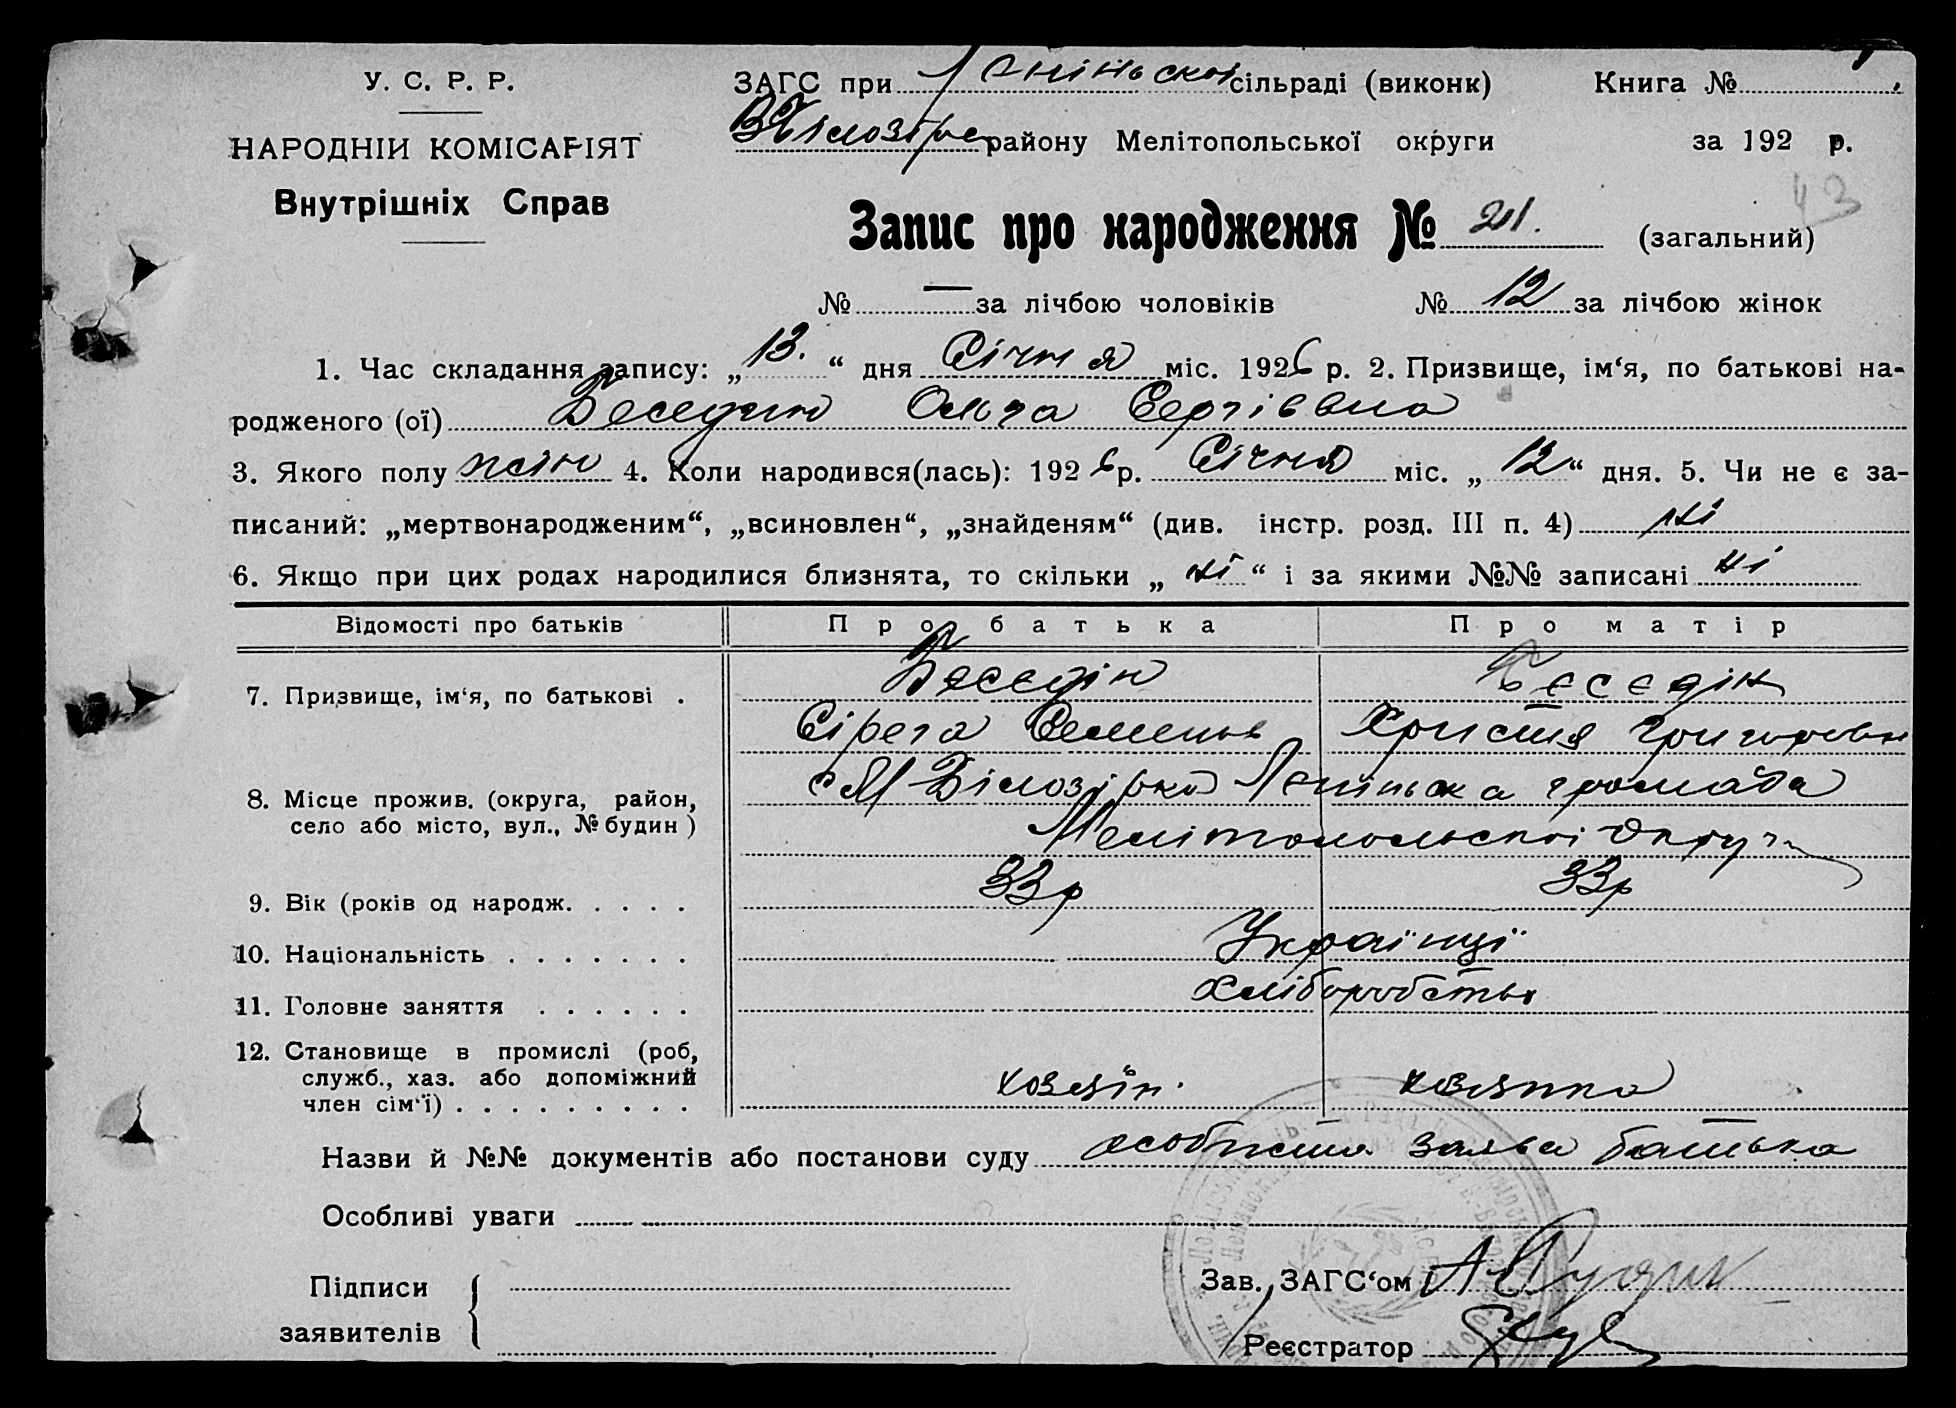 У. С. Р. Р.
НАРОДНІЙ КОМІСАРІЯТ
Внутрішніх Справ
ЗАГС при Леніньской сільраді (виконк) Книга №
В Білозірс району Мелітопольської округи за 192 р.
43
Запис про народження № 21. (загальний)
№ — за лічбою чоловіків № 12 за лічбою жінок
1. Час складання запису: „13.“ дня Січня міс. 1926 р. 2. Призвище, ім‘я, по батькові на-
родженого (ої) Беседин Ольга Сергіевна
3. Якого полу жін 4. Коли народився(лась): 1926 р. Січня міс. „12“ дня. 5. Чи не є за-
писаний: „мертвонародженим“, „всиновлен“, „знайденям“ (див. інстр. розд. III п. 4) ні
6. Якщо при цих родах народилися близнята, то скільки „ні“ і за якими №№ записані ні
Відомості про батьків Про батька Про матір
7. Призвище, ім‘я, по батькові . Беседін Бєсєдін
Сірега Семенов Христя Григоровн
8. Місце прожив. (округа, район, с М Білозірка Леніньска громада
село або місто, вул., № будин ) Мелітопольскоі Округи
9. Вік (років од народж. . . . . 33р 33р
10. Національність . . . . . . . Українці
11. Головне заняття . . . . . . Хліборобство
12. Становище в промислі (роб,
служб., хаз. або допоміжний хозяїн. хозяйка
член сім‘ї) . . . . . . . . .
Назви й №№ документів або постанови суду особиста заява батька
Особливі уваги
Підписи Зав. ЗАГС‘ом
заявителів Реєстратор